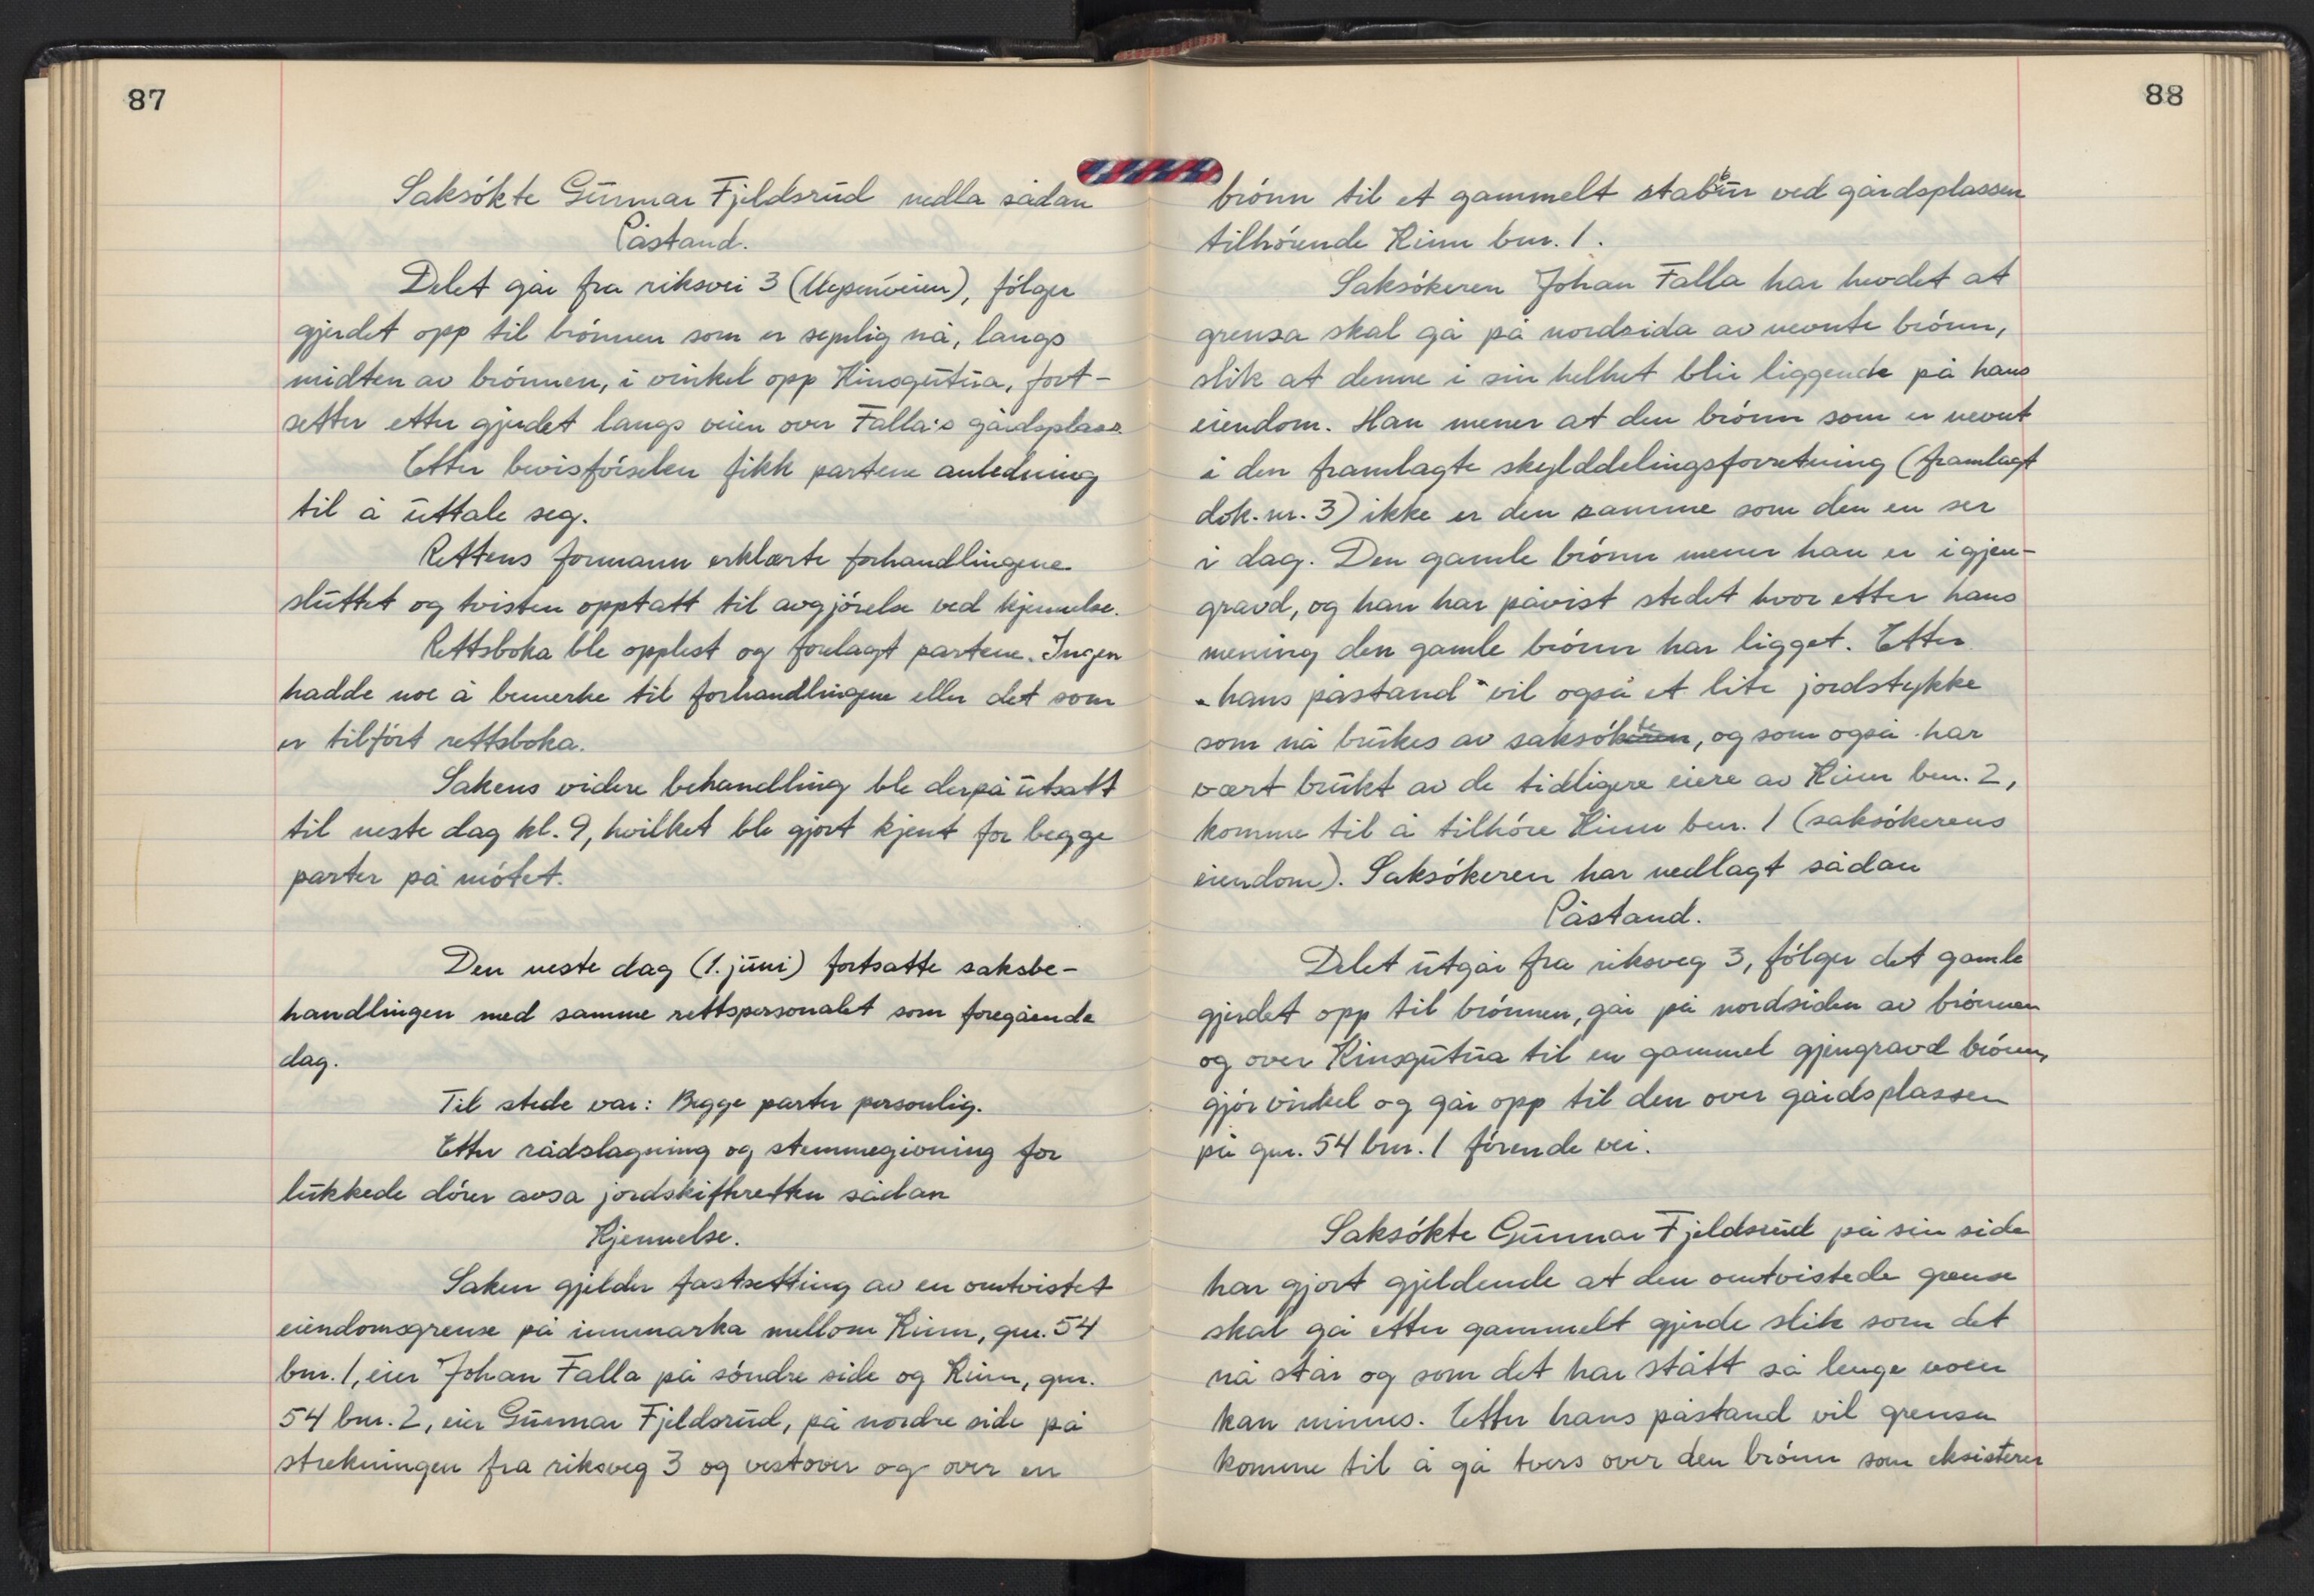 87
Saksökte Gunnar Fjeldsrud nedla sådan
Påstand.
Delet går fra riksvei 3 (Mysenveien), fölger
gjerdet opp til brönnen som er synlig nå, langs
midten av brönnen, i vinkel opp Kinsgutua, fort-
setter etter gjerdet langs veien over Falla's gårdsplass.
Etter bevisförselen fikk partene anledning
til å uttale seg.
Rettens formann erklærte forhandlingene
sluttet og tvisten opptatt til avgjörelse ved kjennelse.
Rettsboka ble opplest og forelagt partene. Ingen
hadde noe å bemerke til forhandlingene eller det som
er tilfört rettsboka.
Sakens videre behandling ble derpå utsatt
til neste dag kl. 9, hvilket ble gjort kjent for begge
parter på mötet.
Den neste dag (1. juni) fortsatte saksbe-
handlingen med samme rettspersonalet som foregående
dag.
Til stede var: Begge parter personlig.
Etter rådslagning og stemmegivning for
lukkede dörer avsa jordskifteretten sådan
Kjennelse.
Saken gjelder fastsetting av en omtvistet
eiendomsgrense på innmarka mellom Kinn, gnr. 54
bnr. 1, eier Johan Falla på söndre side og Kinn, gnr.
54 bnr. 2, eier Gunnar Fjeldsrud, på nordre side på
strekningen fra riksveg 3 og vestover og over en
88
brönn til et gammelt stabbur ved gårdsplassen
tilhörende Kinn bnr. 1.
Saksökeren Johan Falla har hevdet at
grensa skal gå på nordsida av nevnte brönn,
slik at denne i sin helhet blir liggende på hans
eiendom. Han mener at den brönn som er nevnt
i den framlagte skylddelingsforretning (framlagt
dok. nr. 3) ikke er den samme som den en ser
i dag. Den gamle brönn mener han er igjen-
gravd, og han har påvist stedet hvor etter hans
mening den gamle brönn har ligget. Etter
"hans påstand" vil også et lite jordstykke
som nå brukes av saksökte, og som også har
vært brukt av de tidligere eiere av Kinn bnr. 2,
komme til å tilhöre Kinn bnr. 1 (saksökerens
eiendom). Saksökeren har nedlagt sådan
Påstand.
Delet utgår fra riksveg 3, fölger det gamle
gjerdet opp til brönnen, går på nordsiden av brönnen
og over Kinsgutua til en gammel gjengravd brönn,
gjör vinkel og går opp til den over gårdsplassen
på gnr. 54 bnr. 1 förende vei.
Saksökte Gunnar Fjeldsrud på sin side
har gjort gjeldende at den omtvistede grense
skal gå etter gammelt gjerde slik som det
nå står og som det har stått så lenge noen
kan minnes. Etter hans påstand vil grensa
komme til å gå tvers over den brönn som eksisterer